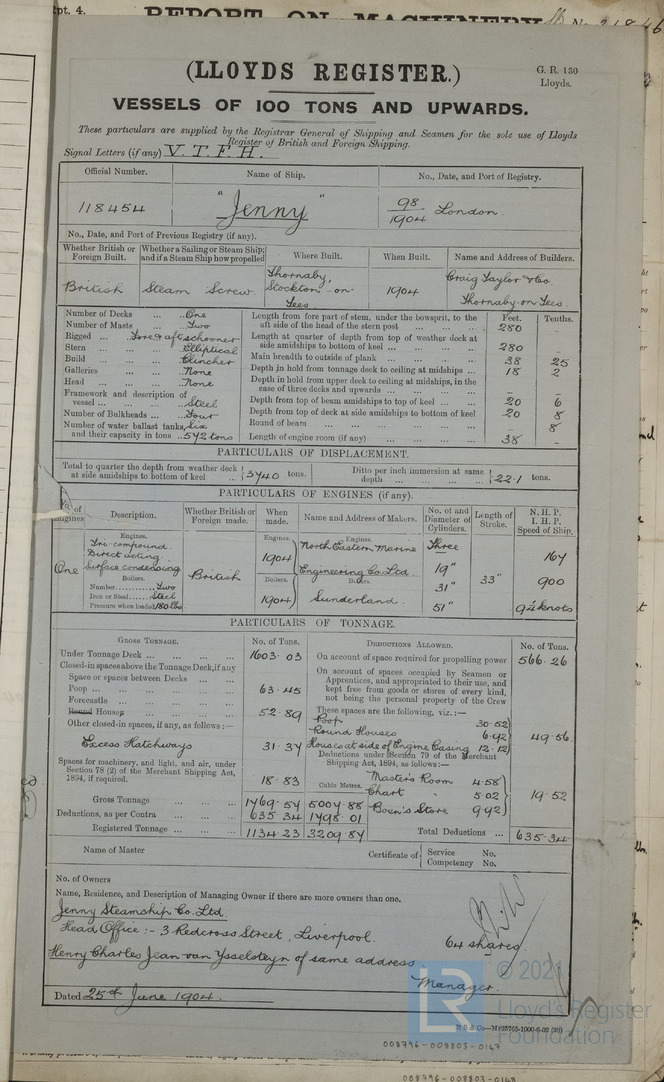 pt. 4.
REPORT ON MACHINERY
(LLOYDS REGISTER.)
G. R. 130
Lloyds.
VESSELS OF 100 TONS AND UPWARDS.
These particulars are supplied by the Registrar General of Shipping and Seamen for the sole use of Lloyds
Register of British and Foreign Shipping.
Signal Letters (if any) V. T. F. H.
Official Number. Name of Ship. No., Date, and Port of Registry.
118454 "Jenny" 98/1904 London.
No., Date, and Port of Previous Registry (if any).
Whether British or Foreign Built. Whether a Sailing or Steam Ship; and if a Steam Ship how propelled Where Built. When Built. Name and Address of Builders.
British Steam Screw Thornaby, Stockton-on-Tees 1904 Craig Taylor & Co Thornaby-on-Tees.
Number of Decks ... ... One
Number of Masts ... ... Two
Rigged ... Fore & aft schooner
Stern ... ... Elliptical
Build ... ... Clincher
Galleries ... ... None
Head ... ... None
Framework and description of vessel ... ... Steel
Number of Bulkheads ... Four
Number of water ballast tanks, Six
and their capacity in tons .. 572 tons
Feet. Tenths.
Length from fore part of stem, under the bowsprit, to the aft side of the head of the stern post ... 280
Length at quarter of depth from top of weather deck at side amidships to bottom of keel ... 280
Main breadth to outside of plank ... 38 25
Depth in hold from tonnage deck to ceiling at midships ... 18 2
Depth in hold from upper deck to ceiling at midships, in the case of three decks and upwards ... – –
Depth from top of beam amidships to top of keel ... 20 6
Depth from top of deck at side amidships to bottom of keel 20 8
Round of beam ... – 8
Length of engine room (if any) ... 38 –
PARTICULARS OF DISPLACEMENT.
Total to quarter the depth from weather deck at side amidships to bottom of keel .. 5740 tons.
Ditto per inch immersion at same depth ... 22.1 tons.
PARTICULARS OF ENGINES (if any).
No. of Engines. Description. Whether British or Foreign made. When made. Name and Address of Makers. No. of and Diameter of Cylinders. Length of Stroke. N. H. P. I. H. P. Speed of Ship.
Engines. Engines. Engines.
One Tri-compound Direct acting Surface condensing British 1904 North Eastern Marine Engineering Co. Ltd Three 19" 31" 51" 33" 164 900 9¼ knots
Boilers. Boilers. Boilers.
Number ... Two
Iron or Steel ... Steel
Pressure when loaded 180 lbs
1904 Sunderland.
PARTICULARS OF TONNAGE.
GROSS TONNAGE. No. of Tons.
Under Tonnage Deck ... 1603.03
Closed-in spaces above the Tonnage Deck, if any
Space or spaces between Decks ...
Poop ... 63.45
Forecastle ...
Round Houses 52.89
Other closed-in spaces, if any, as follows:—
Excess Hatchways 31.34
Spaces for machinery, and light, and air, under Section 78 (2) of the Merchant Shipping Act, 1894, if required. 18.83
Cubic Metres.
Gross Tonnage ... 1769.54 5007.88
Deductions, as per Contra ... 635.34 1798.01
Registered Tonnage ... 1134.23 3209.87
DEDUCTIONS ALLOWED. No. of Tons.
On account of space required for propelling power 566.26
On account of spaces occupied by Seamen or Apprentices, and appropriated to their use, and kept free from goods or stores of every kind, not being the personal property of the Crew
These spaces are the following, viz.:—
Poop 30.52
Round Houses 6.92
Houses at side of Engine Casing 12.12
49.56
Deductions under Section 79 of the Merchant Shipping Act, 1894, as follows:—
Master's Room 4.58
Chart " 5.02
Bosn's Store 9.92
19.52
Total Deductions ... 635.34
Name of Master Certificate of Service No. Competency No.
No. of Owners
Name, Residence, and Description of Managing Owner if there are more owners than one.
Jenny Steamship Co. Ltd.
Head Office :- 3 Redcross Street, Liverpool. 64 shares.
Henry Charles Jean van Ysseloteyn of same address
Manager.
Dated 25th June 1904.
© 2021
LR
Lloyd's Register
Foundation
008796-008803-0167
008796-008803-0168